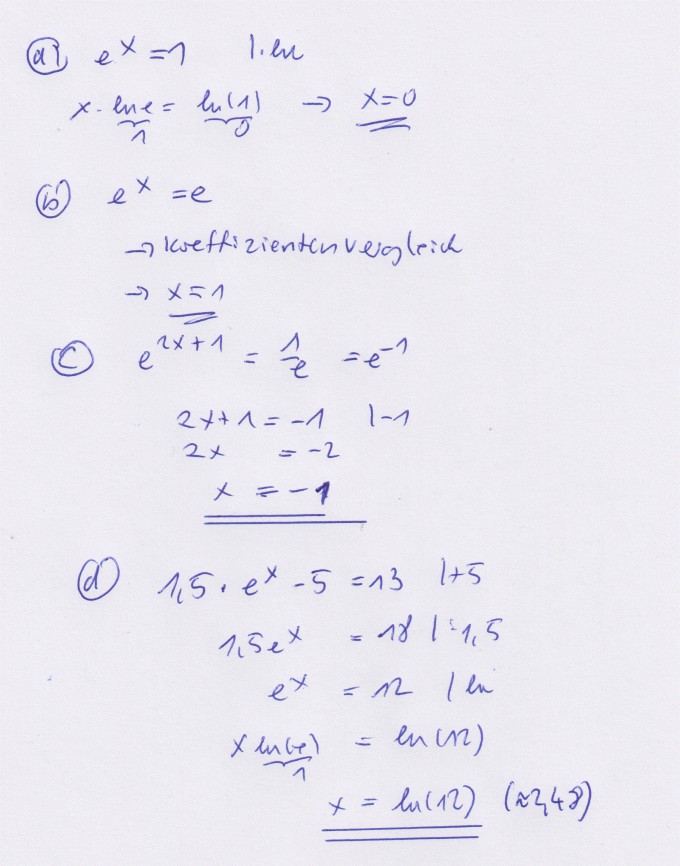 a) e^x = 1 | · ln
x · ln e = ln(1) → x = 0
1 0
b) e^x = e
→ Koeffizientenvergleich
→ x = 1
c) e^(2x+1) = 1/e = e^-1
2x+1 = -1 | -1
2x = -2
x = -1
d) 1,5 · e^x - 5 = 13 | +5
1,5e^x = 18 | : 1,5
e^x = 12 | ln
x ln(e) = ln(12)
1
x = ln(12) (≈2,48)